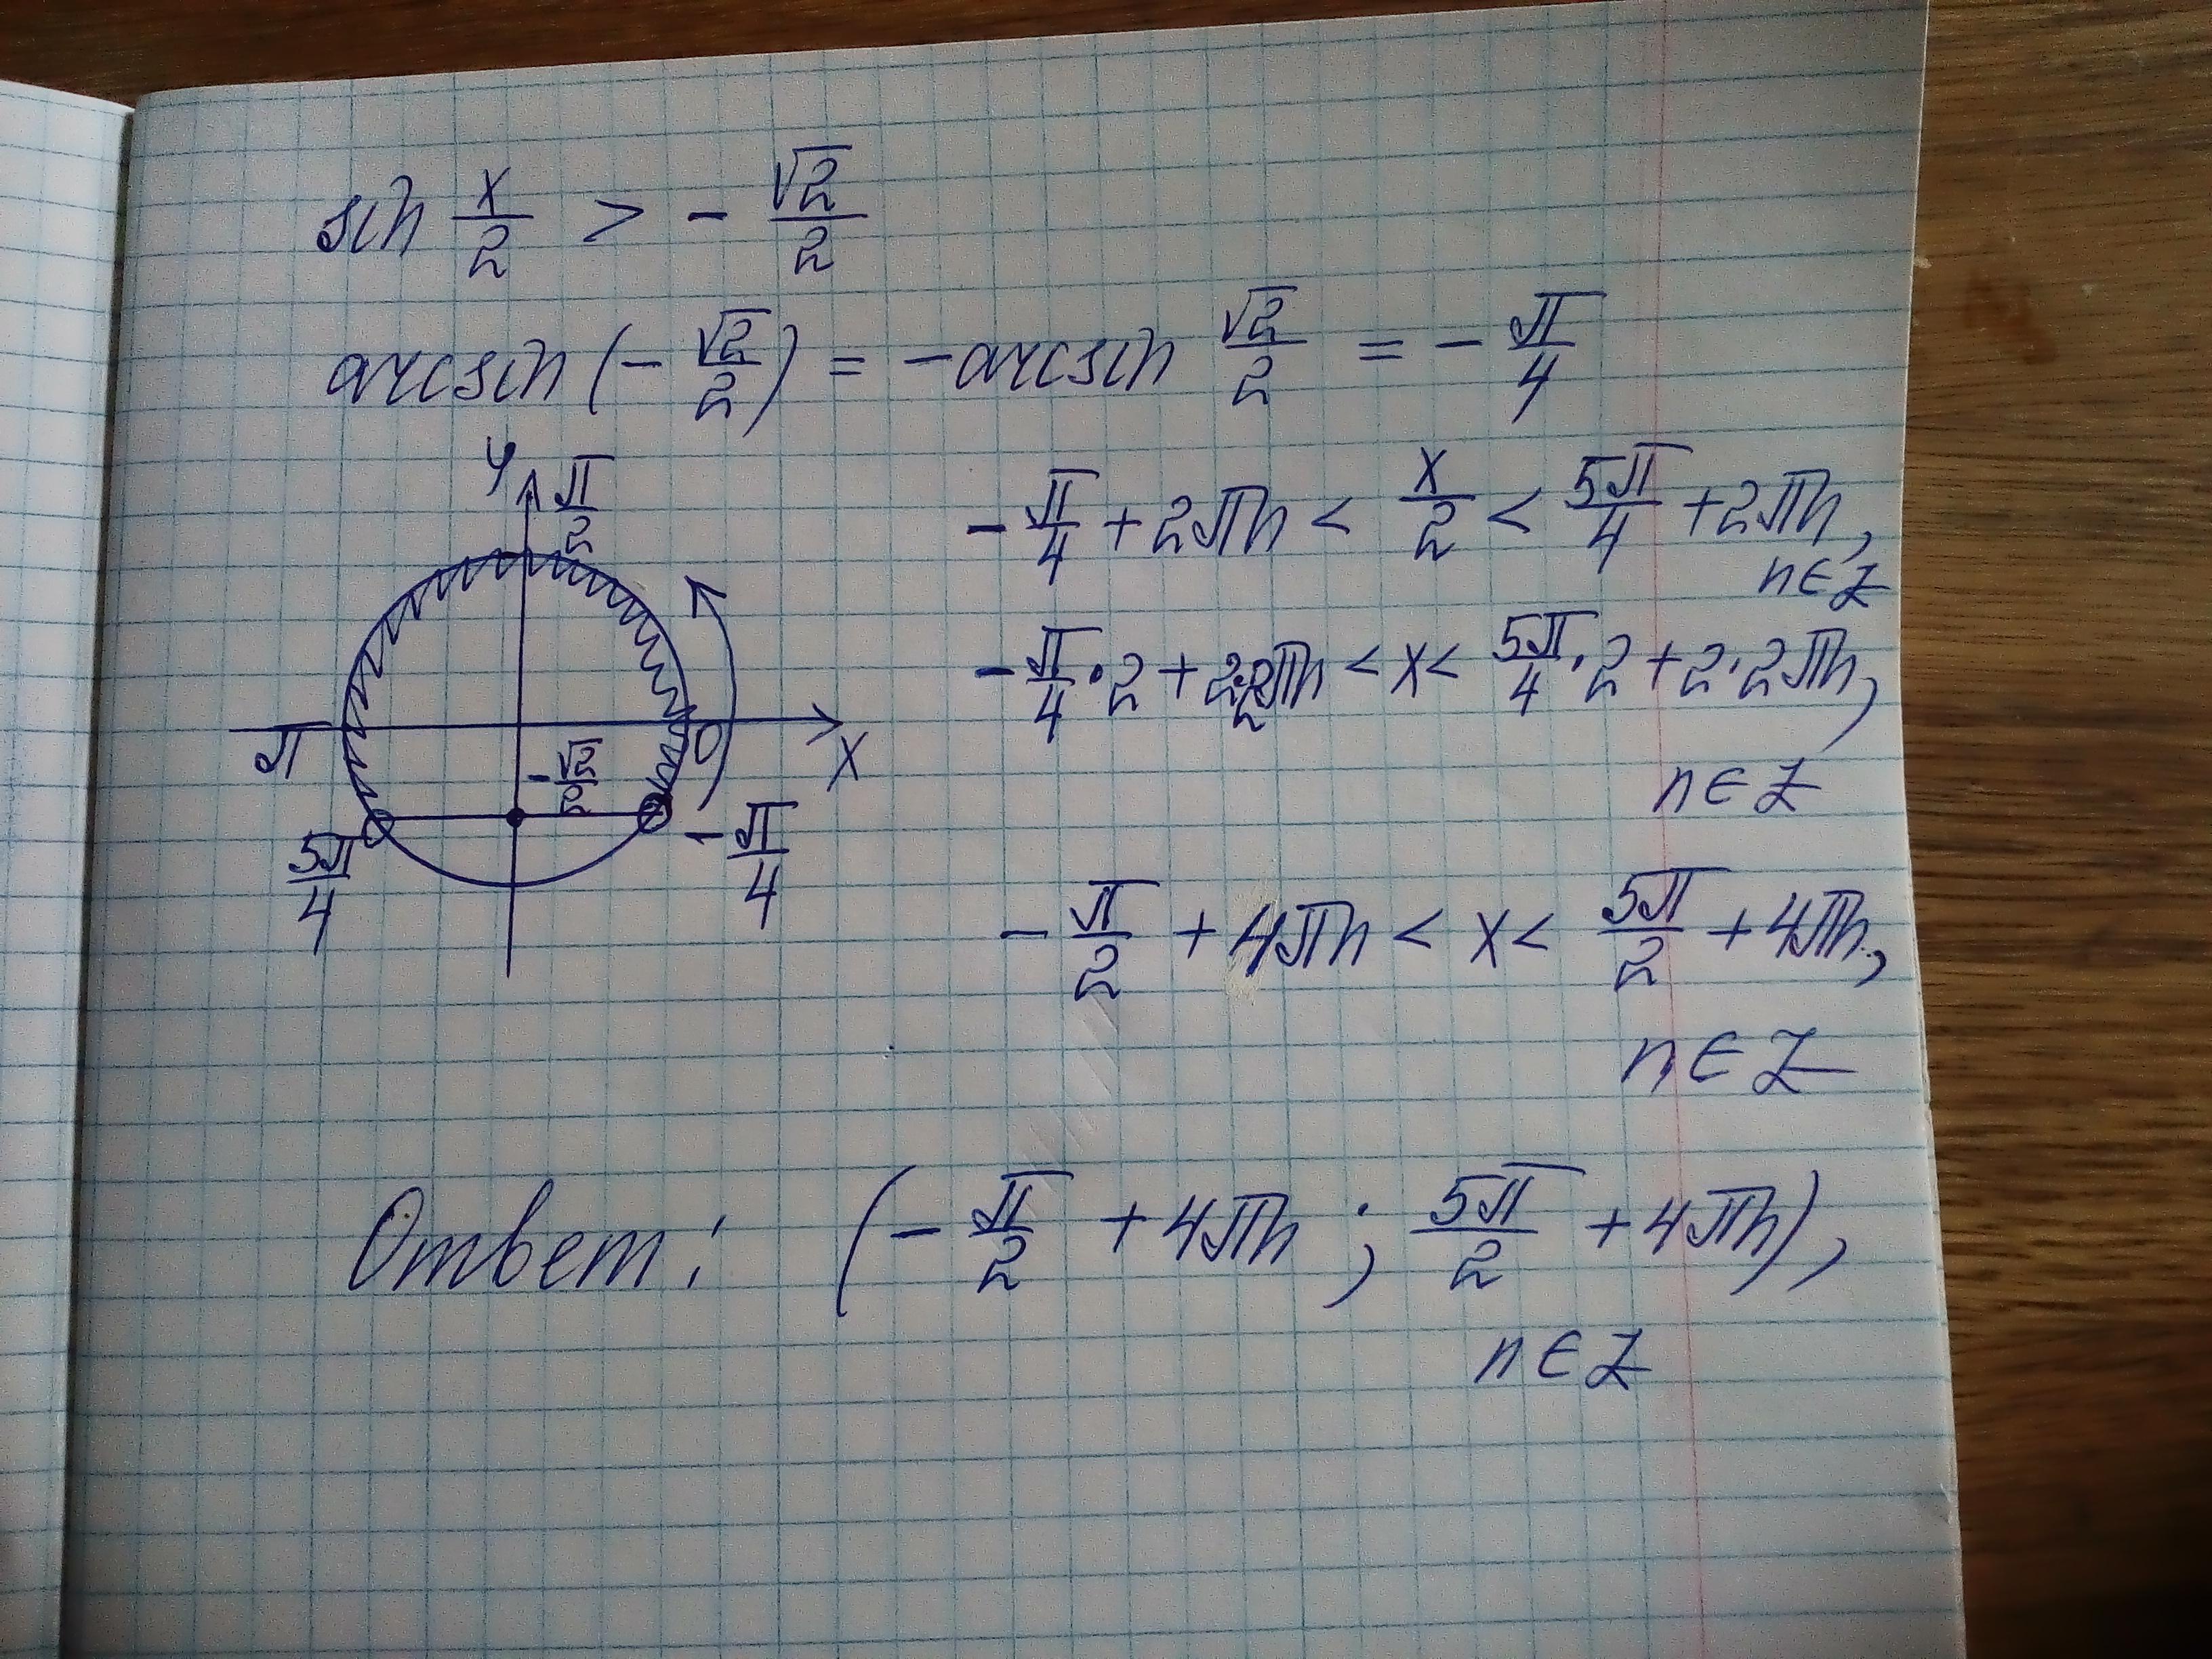 sin x/2 > - √2/2
arcsin (- √2/2) = -arcsin √2/2 = - π/4
y
π/2
π
0
x
-√2/2
5π/4
-π/4
- π/4 + 2πn < x/2 < 5π/4 + 2πn,
n∈Z
- π/4 · 2 + 2·2πn < x < 5π/4 · 2 + 2·2πn,
n∈Z
- π/2 + 4πn < x < 5π/2 + 4πn,
n∈Z
Ответ: (- π/2 + 4πn ; 5π/2 + 4πn),
n∈Z